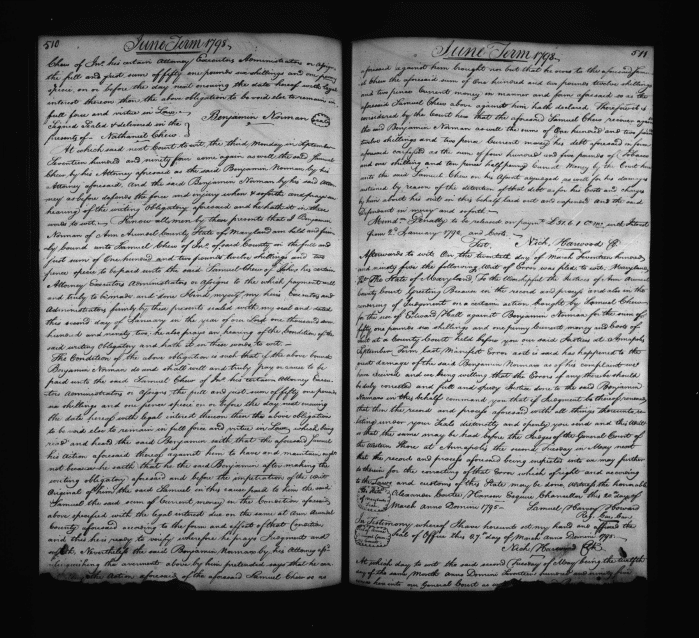 510 June Term 1798.
Chew of Jno. his certain Attorney Executors Administrators or assigns
the full and just sum of fifty one pounds six shillings and one penny
specie, on or before the day next ensuing the date hereof with legal
interest thereon then the above obligation to be void else to remain in
full force and virtue in Law.
Signed Sealed & delivered in the Benjamin Norman
presents of Nathaniel Chew
At which said next Court to wit, the third Monday in September
Seventeen hundred and ninety four came again as well the said Samuel
Chew by his Attorney aforesaid as the said Benjamin Norman by his
Attorney aforesaid. And the said Benjamin Norman by his said Attor
ney as before defends the force and injury when &c and prays an
hearing of the writing Obligatory aforesaid and he hath it in these
words to wit Know all men by these presents that I Benjamin
Norman of Ann Arundel County State of Maryland am held and firm
ly bound unto Samuel Chew of Jno. of said County in the full and
just sum of One hundred and two pounds twelve shillings and two
pence specie to be paid unto the said Samuel Chew of John his certain
Attorney Executors Administrators or Assigns to the which payment well
and truly to be made and done I bind myself my heirs Executors and
Administrators firmly by these presents sealed with my seal and dated
this second day of January in the year of our Lord one thousand seven
hundred and ninety two; he also prays an hearing of the Condition of the
said writing Obligatory and hath it in these words to wit
The Condition of the above obligation is such that if the above bound
Benjamin Norman do and shall well and truly pay or cause to be
paid unto the said Samuel Chew of Jno his certain Attorney Execu
tor Administrators or Assigns the full and just sum of fifty one pounds
six shillings and one penny specie on or before the day next ensuing
the date hereof with legal interest thereon then the above obligation
to be void else to remain in full force and virtue in Law, which being
read and heard the said Benjamin saith that the aforesaid Samuel
his Action aforesaid thereof against him to have and maintain ought
not because he saith that he the said Benjamin after making the
writing obligatory aforesaid and before the impetration of the Writ
Original of him the said Samuel in this cause paid to him the said
Samuel the said sum of Current money in the Condition aforesaid
above specified with the legal interest due on the same at Ann Arundel
County aforesaid according to the form and effect of that Condition
and this he is ready to verify wherefore he prays Judgment and
so forth. Nevertheless the said Benjamin Norman by his Attorney afsd.
relinquishing the averment above by him pretended says that he can
the Action aforesaid of the aforesaid Samuel Chew or as
June Term 1798. 511
aforesaid against him brought nor but that he owes to the aforesaid Sam
uel Chew the aforesaid sum of One hundred and two pounds twelve shillings
and two pence Current money in manner and form aforesaid as the
aforesaid Samuel Chew above against him hath declared Therefore it is
considered by the Court here that the aforesaid Samuel Chew recover against
the said Benjamin Norman as well the sum of One hundred and two pounds
twelve shillings and two pence Current money his debt aforesaid in form
aforesaid as the sum of four hundred and pounds of Tobacco
and one shilling and ten pence half penny Current Money by the Court here
unto the said Samuel Chew on his Assent adjudged as well for his damages
sustained by reason of the detention of that debt as for his Costs and charges
by him about his suit in this behalf laid out and expended and the said
defendant in mercy and so forth
Memo. Generally to be released on paymt. of £51 6 1 with Interest
from 2d. January 1792, and Costs
Test. Nich. Harwood Clk.
Afterwards to wit On the twentieth day of March Seventeen hundred
and ninety five the following Writ of Error was filed to wit, Maryland
The State of Maryland To the Honorable the Justices of Ann Arundel
County Court Greeting Because in the record and process and also in the
rendering of Judgment on a certain action brought by Samuel Chew
for the use of Edward Hall against Benjamin Norman for the sum of
fifty one pounds six shillings and one penny Current money and Costs of
suit at a County Court held before you our said Justices at Annapolis
September Term last Manifest Error as it is said has happened to the
great damage of the said Benjamin Norman as of his complaint we
have received and we being willing that the Error if any there be should
be duly corrected and full and speedy Justice done to the said Benjamin
Norman in this behalf command you that if Judgment be thereof rendered
that then the record and process aforesaid with all things thereunto re
lating under your Seals distinctly and openly you send and this Writ
so that the same may be had before the Judges of the General Court of
the Western Shore at Annapolis the second Tuesday in May next
that the record and process aforesaid being inspected into we may further
do therein for the correction of that Error which of right and according
to the Laws and customs of this State may be done, Witness the honorable
Alexander Contee Hanson Esquire Chancellor this 20 day of
March Anno Domini 1795. Samuel Harvey Howard
Reg. Cur. Can.
In Testimony whereof I have hereunto set my hand and affixed the
Seal of Office this 27th day of March Anno Domini 1795.
Nich. Harwood Clk.
At which day to wit the said second Tuesday of May being the twelfth
day of the same Month Anno Domini Seventeen hundred and ninety five